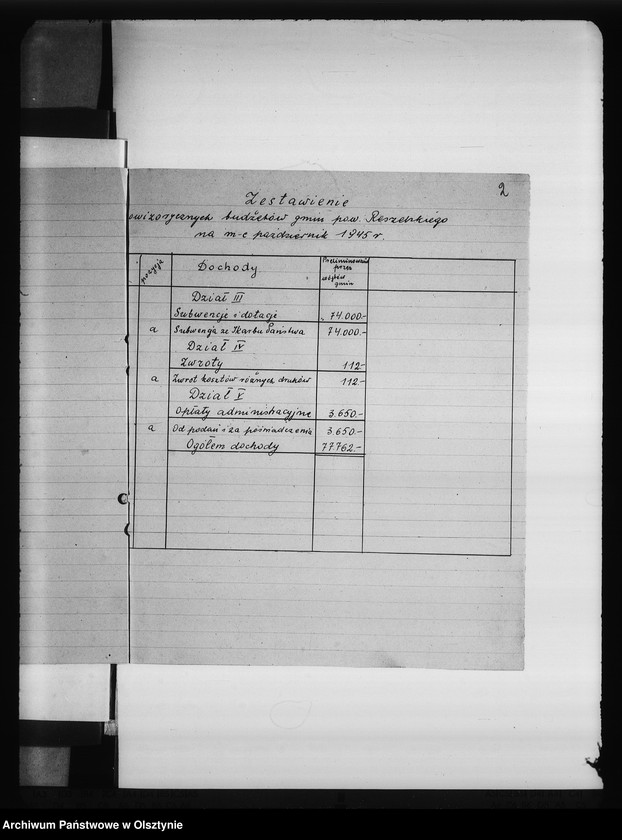 2
Zestawienie
owizorycznych budżetów gmin pow. Reszelskiego
na m-c październik 1945 r.
pozycja
Dochody
Preliminowano
przez
gmin
Dział III
Subwencje i dotacje 74.000.-
a Subwencja ze Skarbu Państwa 74.000.-
Dział IV
Zwroty 112.-
a Zwrot kosztów różnych druków 112.-
Dział V
Opłaty administracyjne 3.650.-
a Od podań i za poświadczenia 3.650.-
Ogółem dochody 77.762.-
Archiwum Państwowe w Olsztynie